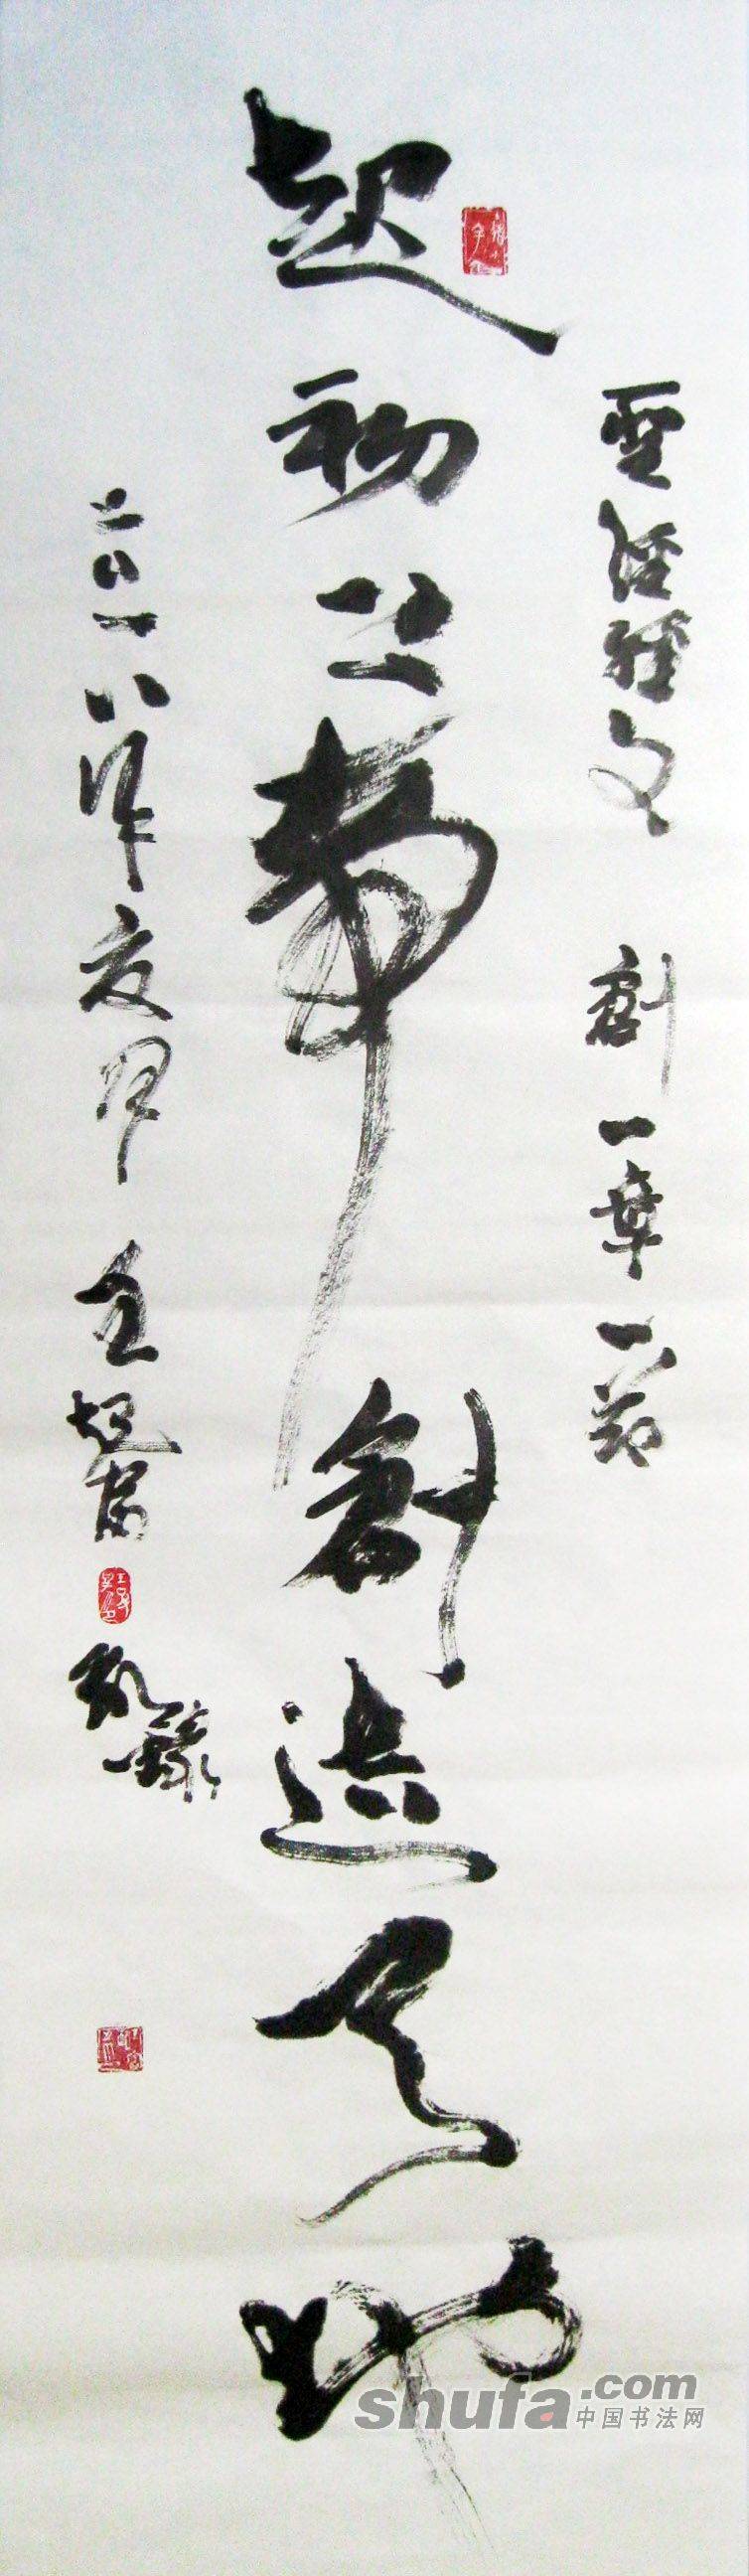 聖經經文 創一章一節
起初上帝創造天地
二〇一八年夏月 王 敬錄
shufa.com
中国书法网